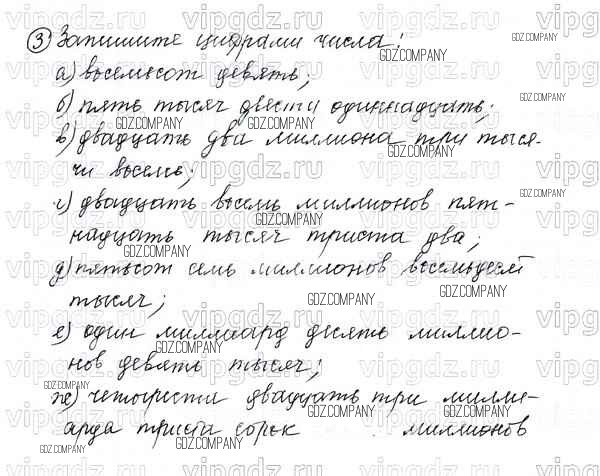 ③ Запишите цифрами числа:
а) восемьсот девять;
б) пять тысяч двести одиннадцать;
в) двадцать два миллиона три тыся-
чи восемь;
г) двадцать восемь миллионов пят-
надцать тысяч триста два;
д) пятьсот семь миллионов восемьдесят
тысяч;
е) один миллиард десять миллио-
нов девять тысяч;
ж) четыреста двадцать три милли-
арда триста сорок миллионов